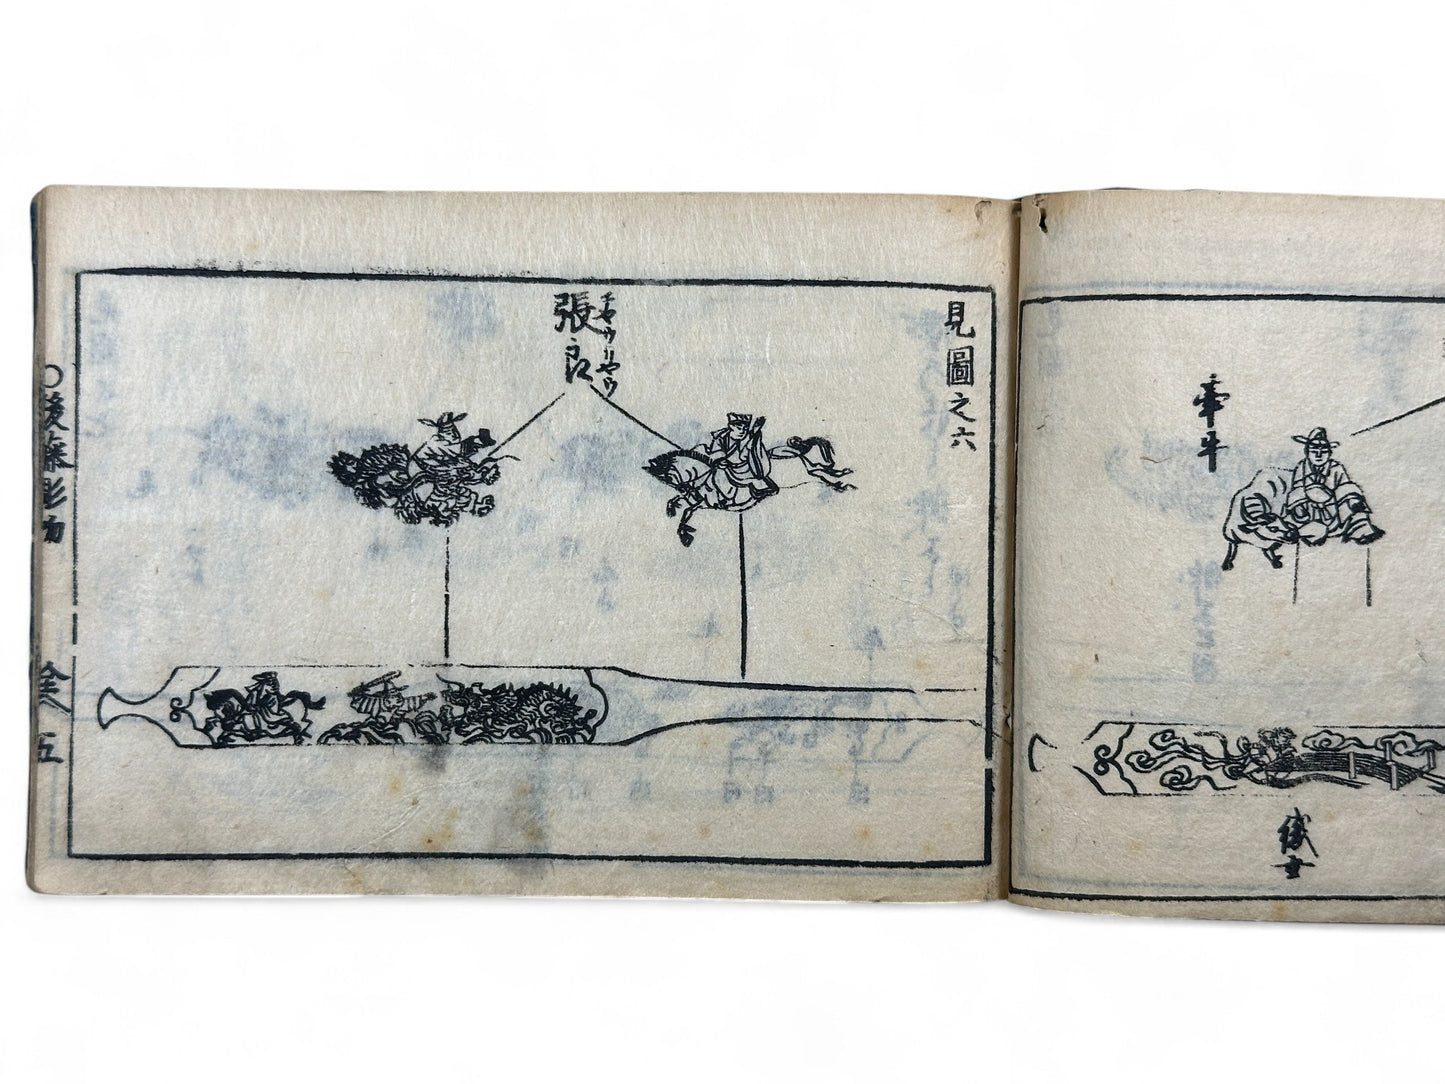 牽牛
見圖之六
張良
チヤウリヤウ
後藤彫物
五